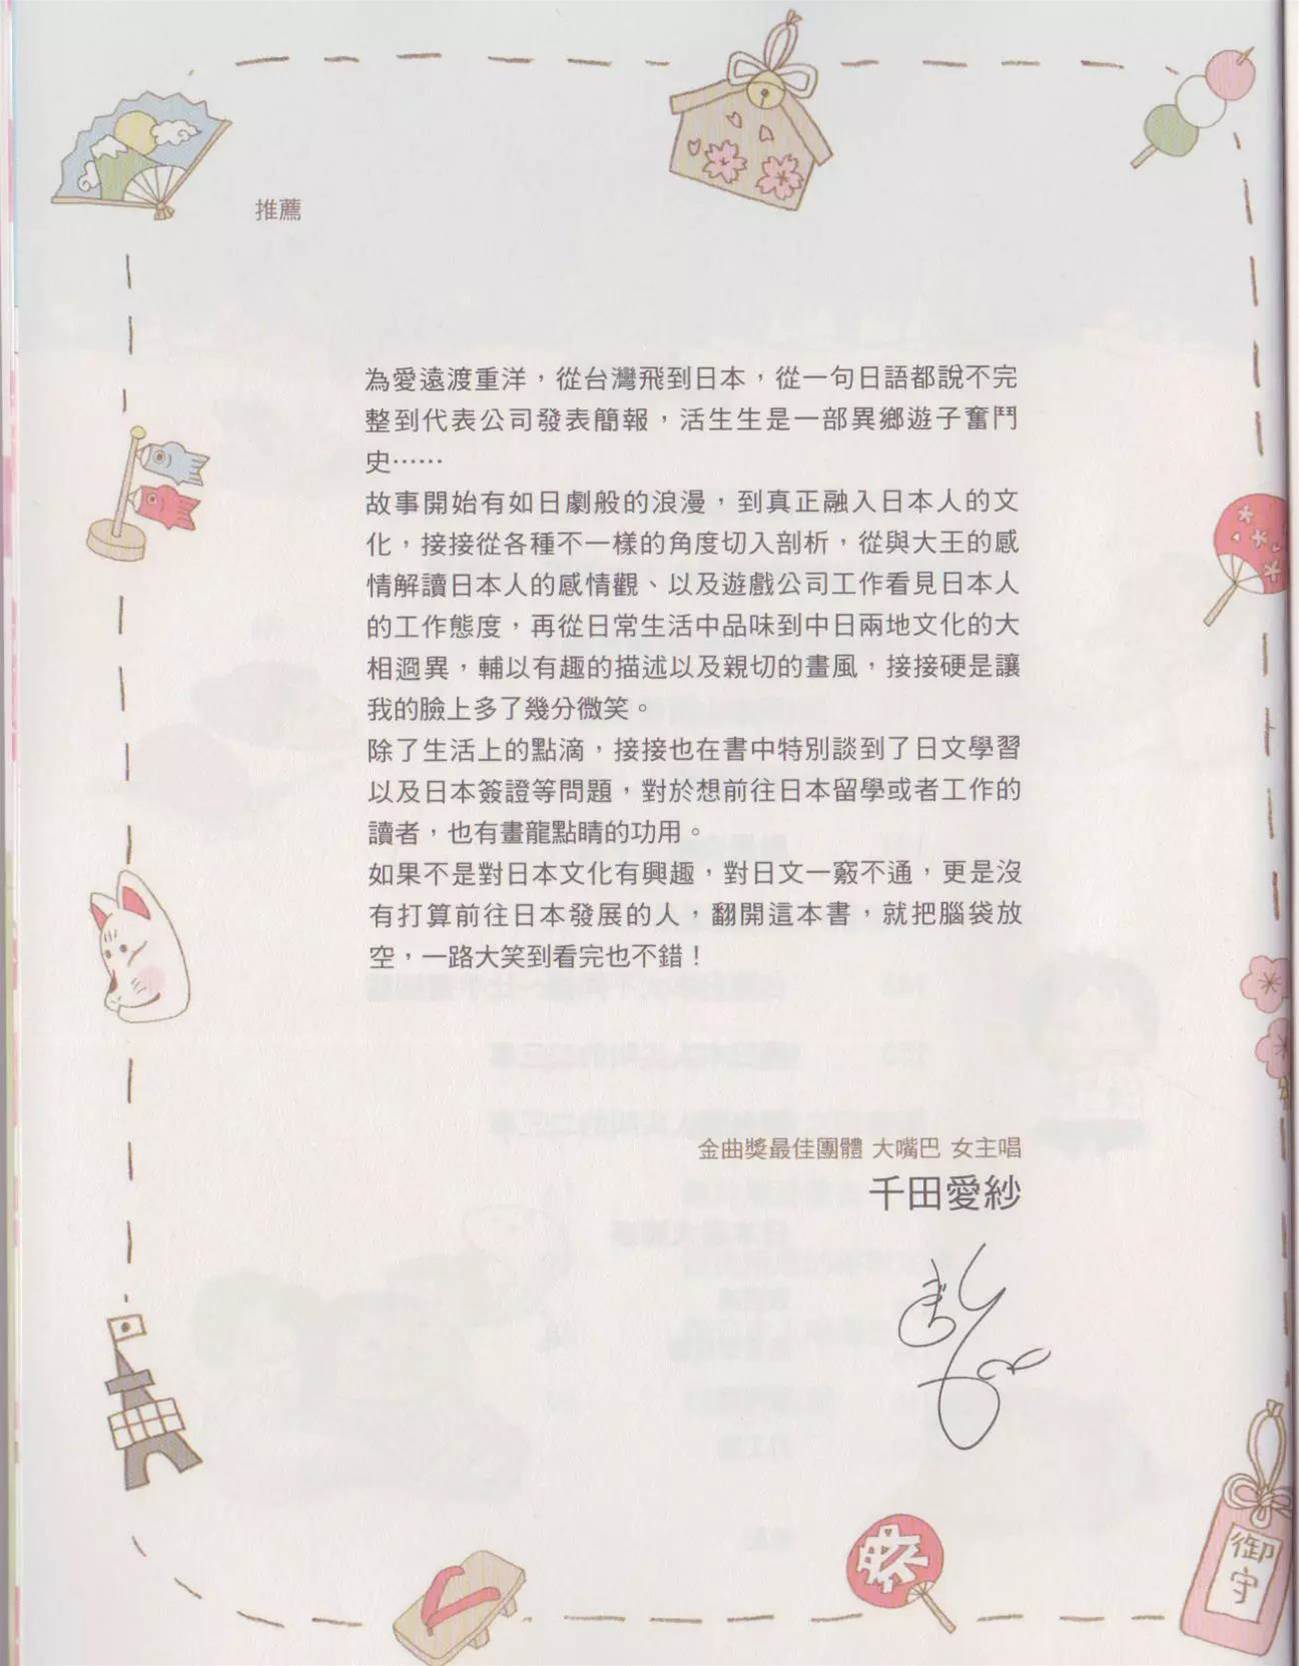 推薦
為愛遠渡重洋，從台灣飛到日本，從一句日語都說不完
整到代表公司發表簡報，活生生是一部異鄉遊子奮鬥
史……
故事開始有如日劇般的浪漫，到真正融入日本人的文
化，接接從各種不一樣的角度切入剖析，從與大王的感
情解讀日本人的感情觀、以及遊戲公司工作看見日本人
的工作態度，再從日常生活中品味到中日兩地文化的大
相迥異，輔以有趣的描述以及親切的畫風，接接硬是讓
我的臉上多了幾分微笑。
除了生活上的點滴，接接也在書中特別談到了日文學習
以及日本簽證等問題，對於想前往日本留學或者工作的
讀者，也有畫龍點睛的功用。
如果不是對日本文化有興趣，對日文一竅不通，更是沒
有打算前往日本發展的人，翻開這本書，就把腦袋放
空，一路大笑到看完也不錯！
金曲獎最佳團體 大嘴巴 女主唱
千田愛紗
祭
御守